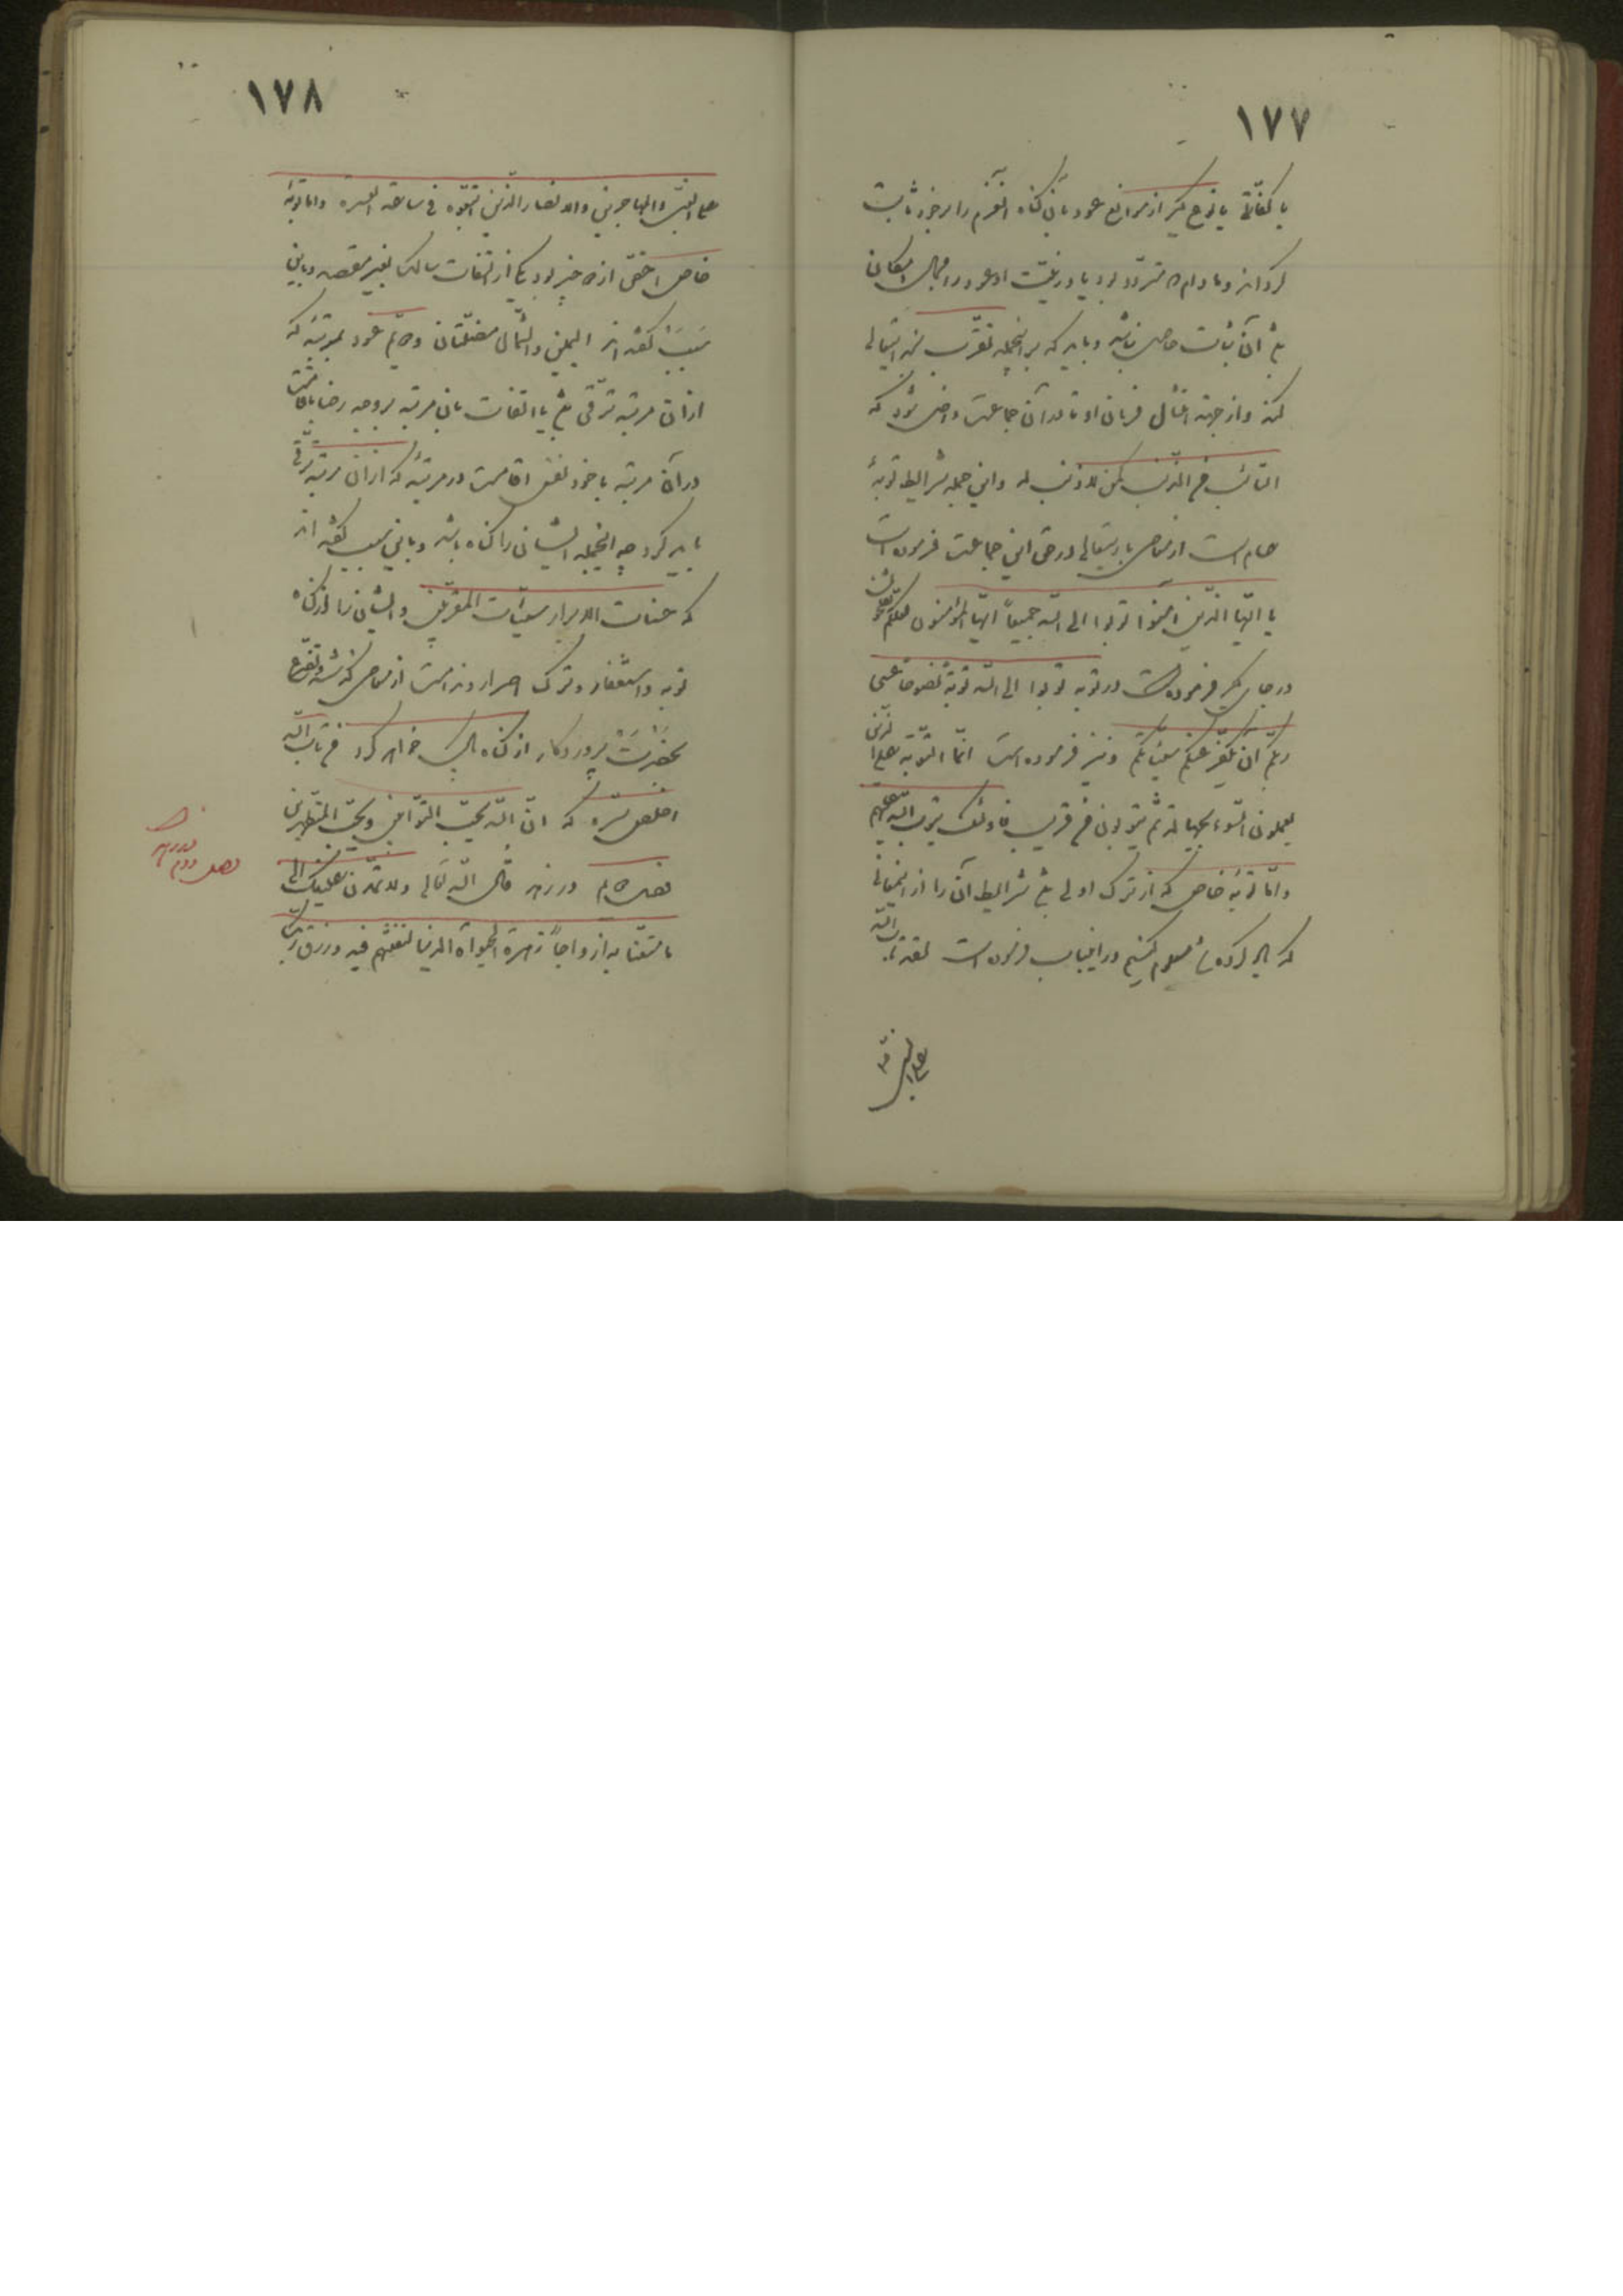 ١٧٧
یا کفارتی یا نوعی دیگر از موانع عود بآن گناه آنعزم را بر خود ثابت
گرداند و مادام که متردد بود یا در نیت او عود را مجال امکان
باشد آن ثبات حاصل نباشد و باید که بر اینجمله تقرب بخدایتعالی
کند و از جهت امتثال فرمان او تا در آن جماعت داخل شود که
التائب من الذنب کمن لا ذنب له و این جمله شرایط توبهٔ
عام است از معاصی باریتعالی در حق این جماعت فرموده است
یا ایها الذین امنوا توبوا الی الله جمیعاً ایها المؤمنون لعلکم تفلحون
در جای دیگر فرموده است در توبه توبوا الی الله توبة نصوحا عسی
ربکم ان یکفر عنکم سیئاتکم و نیز فرموده است انما التوبة علی الله للذین
یعملون السوء بجهالة ثم یتوبون من قریب فاولئک یتوب الله علیهم
و اما توبهٔ خاص که از ترک اولی باشد شرایط آن را از این معانی
که یاد کرده شد معلوم کنیم در اینباب فرموده است لقد تاب الله
علی النبی
١٧٨
علی النبی والمهاجرین والانصار الذین اتبعوه فی ساعة العسرة و اما توبهٔ
خاص اخص از دو چیز بود یکی از التفات سالک بغیر مقصد و باین
سبب گفته اند الیمین والشمال مضلتان و دوم عود بمرتبهٔ که
از آن مرتبه ترقی باشد یا التفات بآن مرتبه بر وجه رضا باقامت
در آن مرتبه یا خود نفس اقامت در مرتبهٔ که از آن مرتبه ترقی
باید کرد چه اینجمله ایشان را گناه باشد و باین سبب گفته اند
که حسنات الابرار سیئات المقربین و ایشان را از گناه
توبه و استغفار و ترک اصرار و ندامت از معاصی گذشته و تضرع
بحضرت پروردگار از گناه پاک خواهد کرد من تاب الله
اخلص سره که ان الله یحب التوابین ویحب المتطهرین
فصل دوم در زهد قال الله تعالی ولا تمدن عینیک الی
ما متعنا به ازواجاً زهرة الحیوة الدنیا لنفتنهم فیه و رزق ربک
فصل دوم در زهد